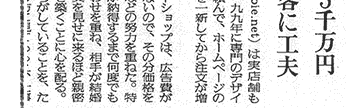 千万円
客に工夫
io.net)は実店舗も
九九年に専門のデザイ
んで、ホームページの
一新してから注文が増
ショップは、広告費が
いので、その分価格を
どの努力を重ねた。特
納得するまで何度でも
せを重ね、相手が結婚
を見せに来るほど親密
築くことに心を配る。
がしていることを、た